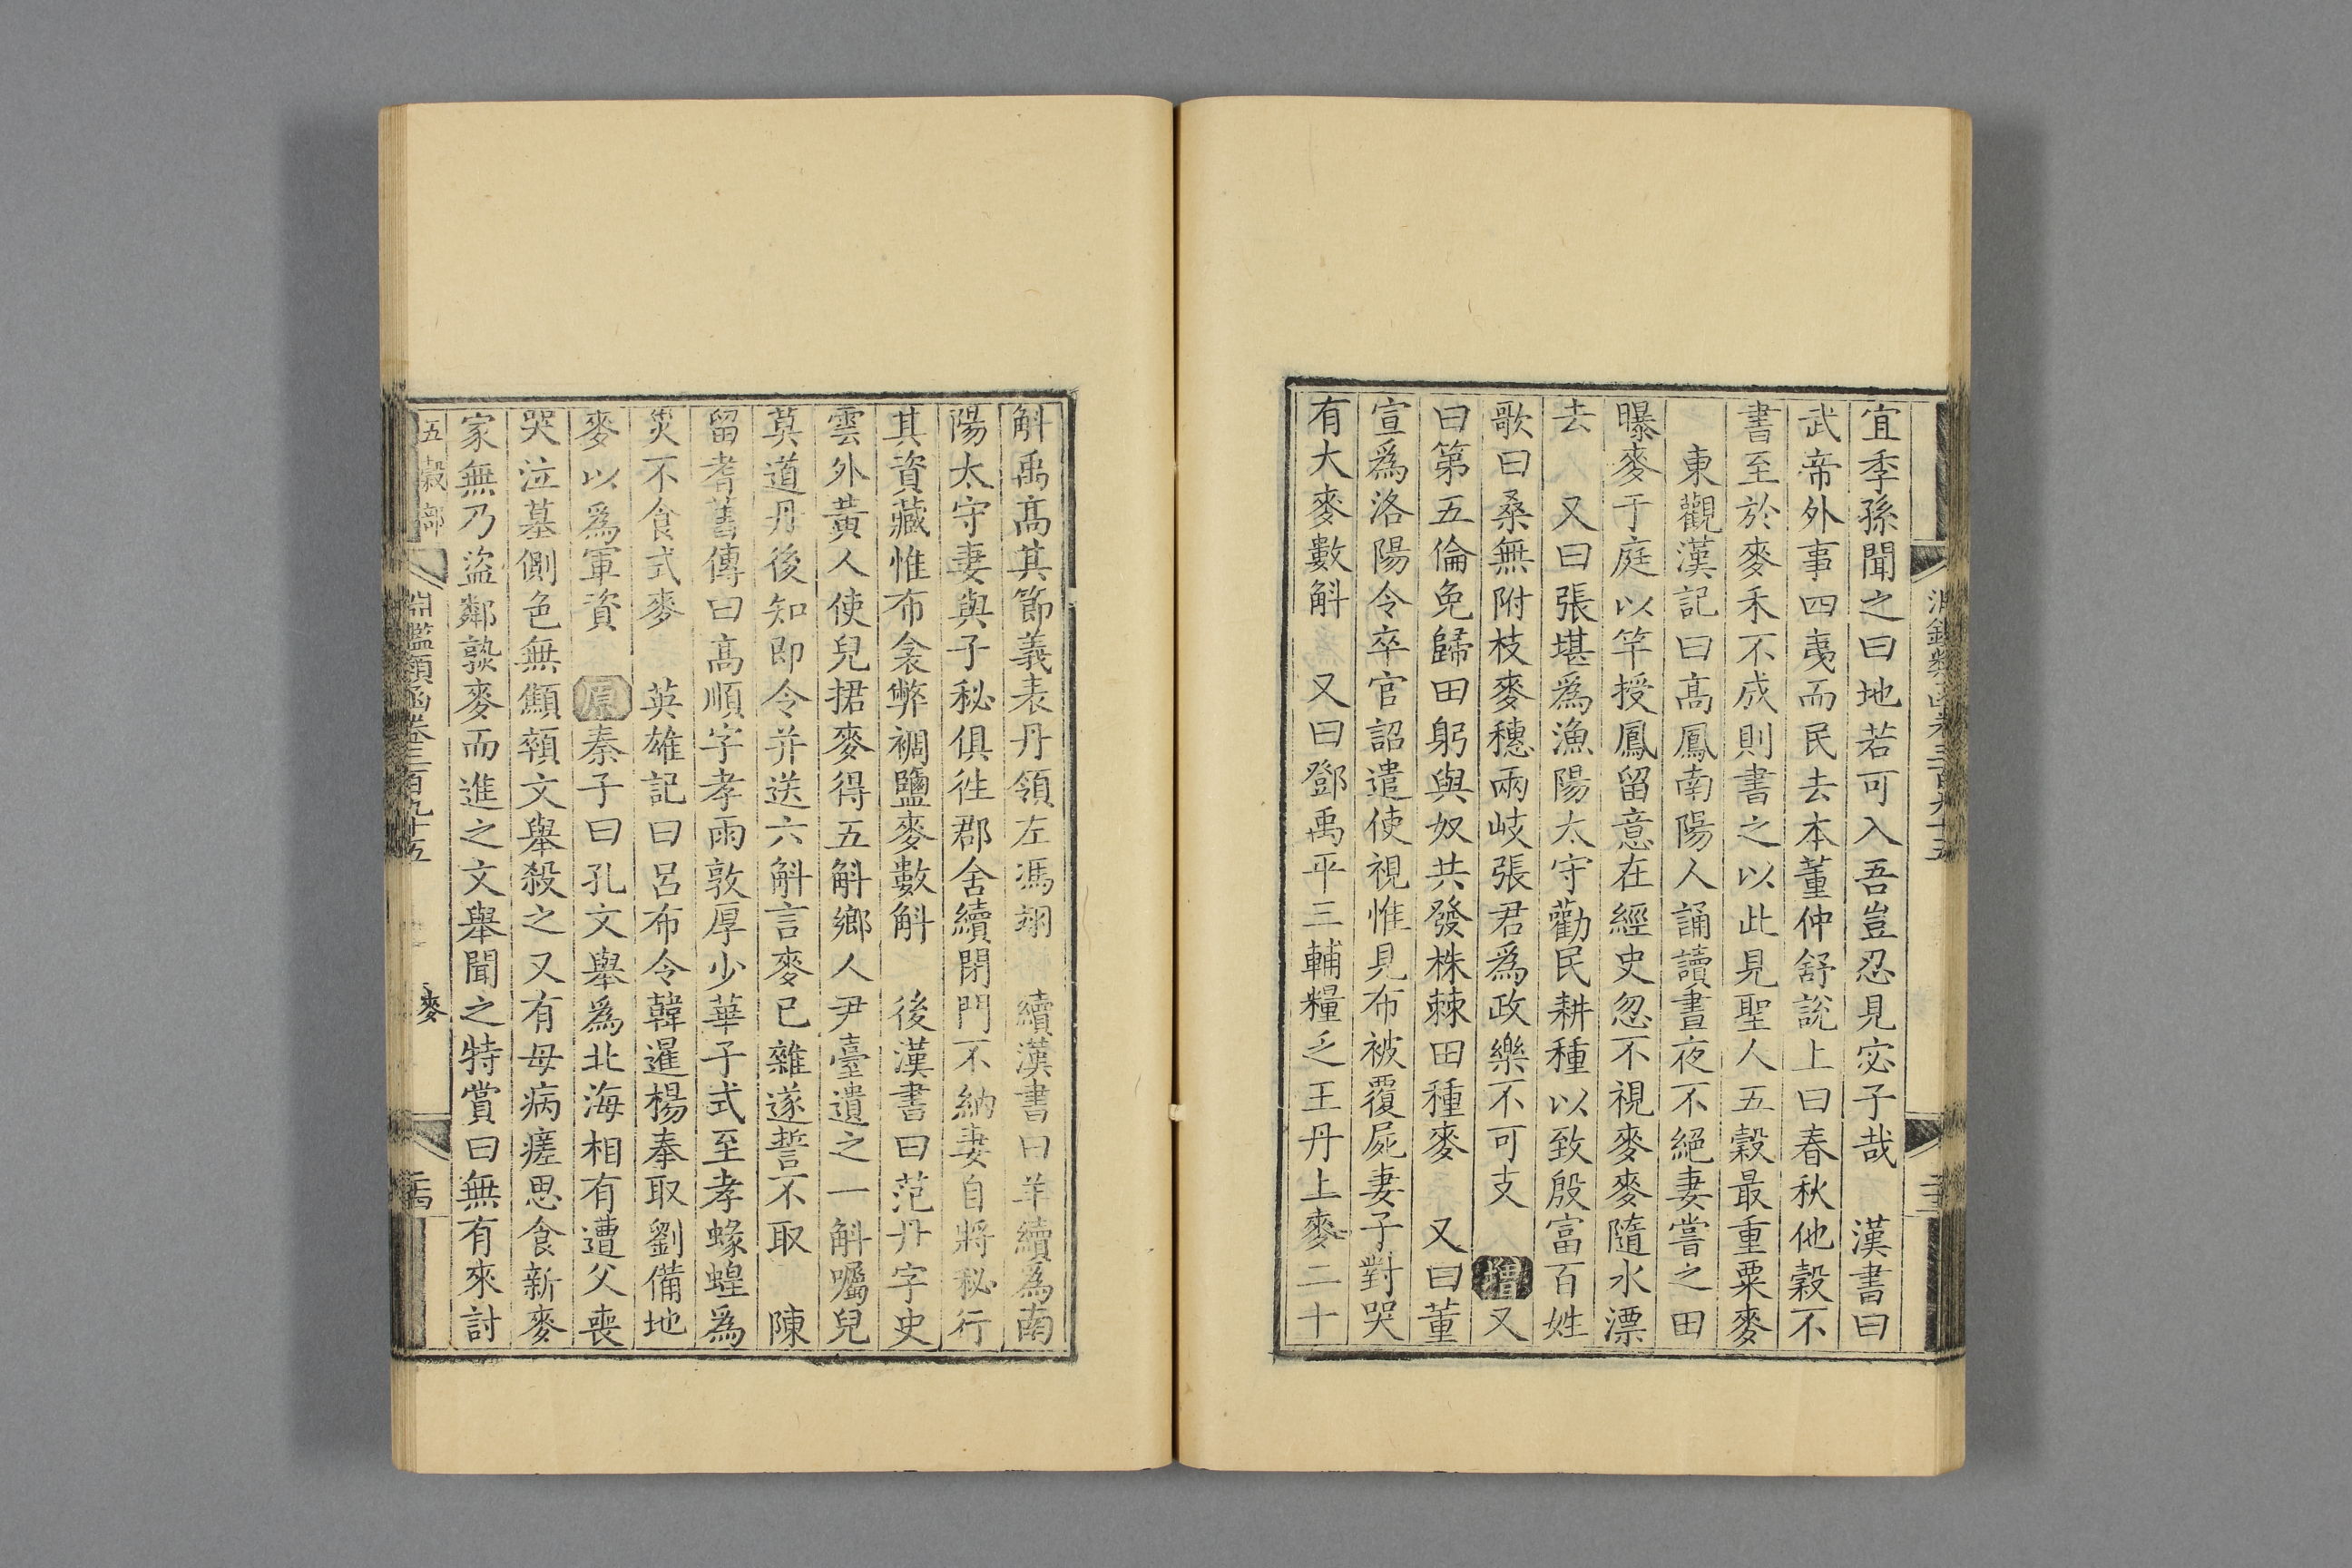 宜季孫聞之曰地若可入吾豈忍見宓子哉　漢書曰
武帝外事四夷而民去本董仲舒說上曰春秋他穀不
書至於麥禾不成則書之以此見聖人五穀最重粟麥
東觀漢記曰高鳳南陽人誦讀書晝夜不絕妻嘗之田
曝麥于庭以竿授鳳留意在經史忽不視麥麥隨水漂
去　又曰張堪爲漁陽太守勸民耕種以致殷富百姓
歌曰桑無附枝麥穗兩岐張君爲政樂不可支　增又
曰第五倫免歸田躬與奴共發株棘田種麥　又曰董
宣爲洛陽令卒官詔遣使視惟見布被覆屍妻子對哭
有大麥數斛　又曰鄧禹平三輔糧乏王丹上麥二十
斛禹高其節義表丹領左馮翊　續漢書曰羊續爲南
陽太守妻與子秘俱徃郡舍續閉門不納妻自將秘行
其資藏惟布衾弊裯鹽麥數斛　後漢書曰范丹字史
雲外黃人使兒捃麥得五斛鄉人尹臺遺之一斛囑兒
莫道丹後知即令并送六斛言麥已雜遂誓不取　陳
留耆舊傳曰高順字孝甫敦厚少華子式至孝蝝蝗爲
災不食式麥　英雄記曰呂布令韓暹楊奉取劉備地
麥以爲軍資　原秦子曰孔文舉爲北海相有遭父喪
哭泣墓側色無顦顇文舉殺之又有母病瘥思食新麥
家無乃盜鄰熟麥而進之文舉聞之特賞曰無有來討
五穀部
淵鑑類函卷三百九十五
麥